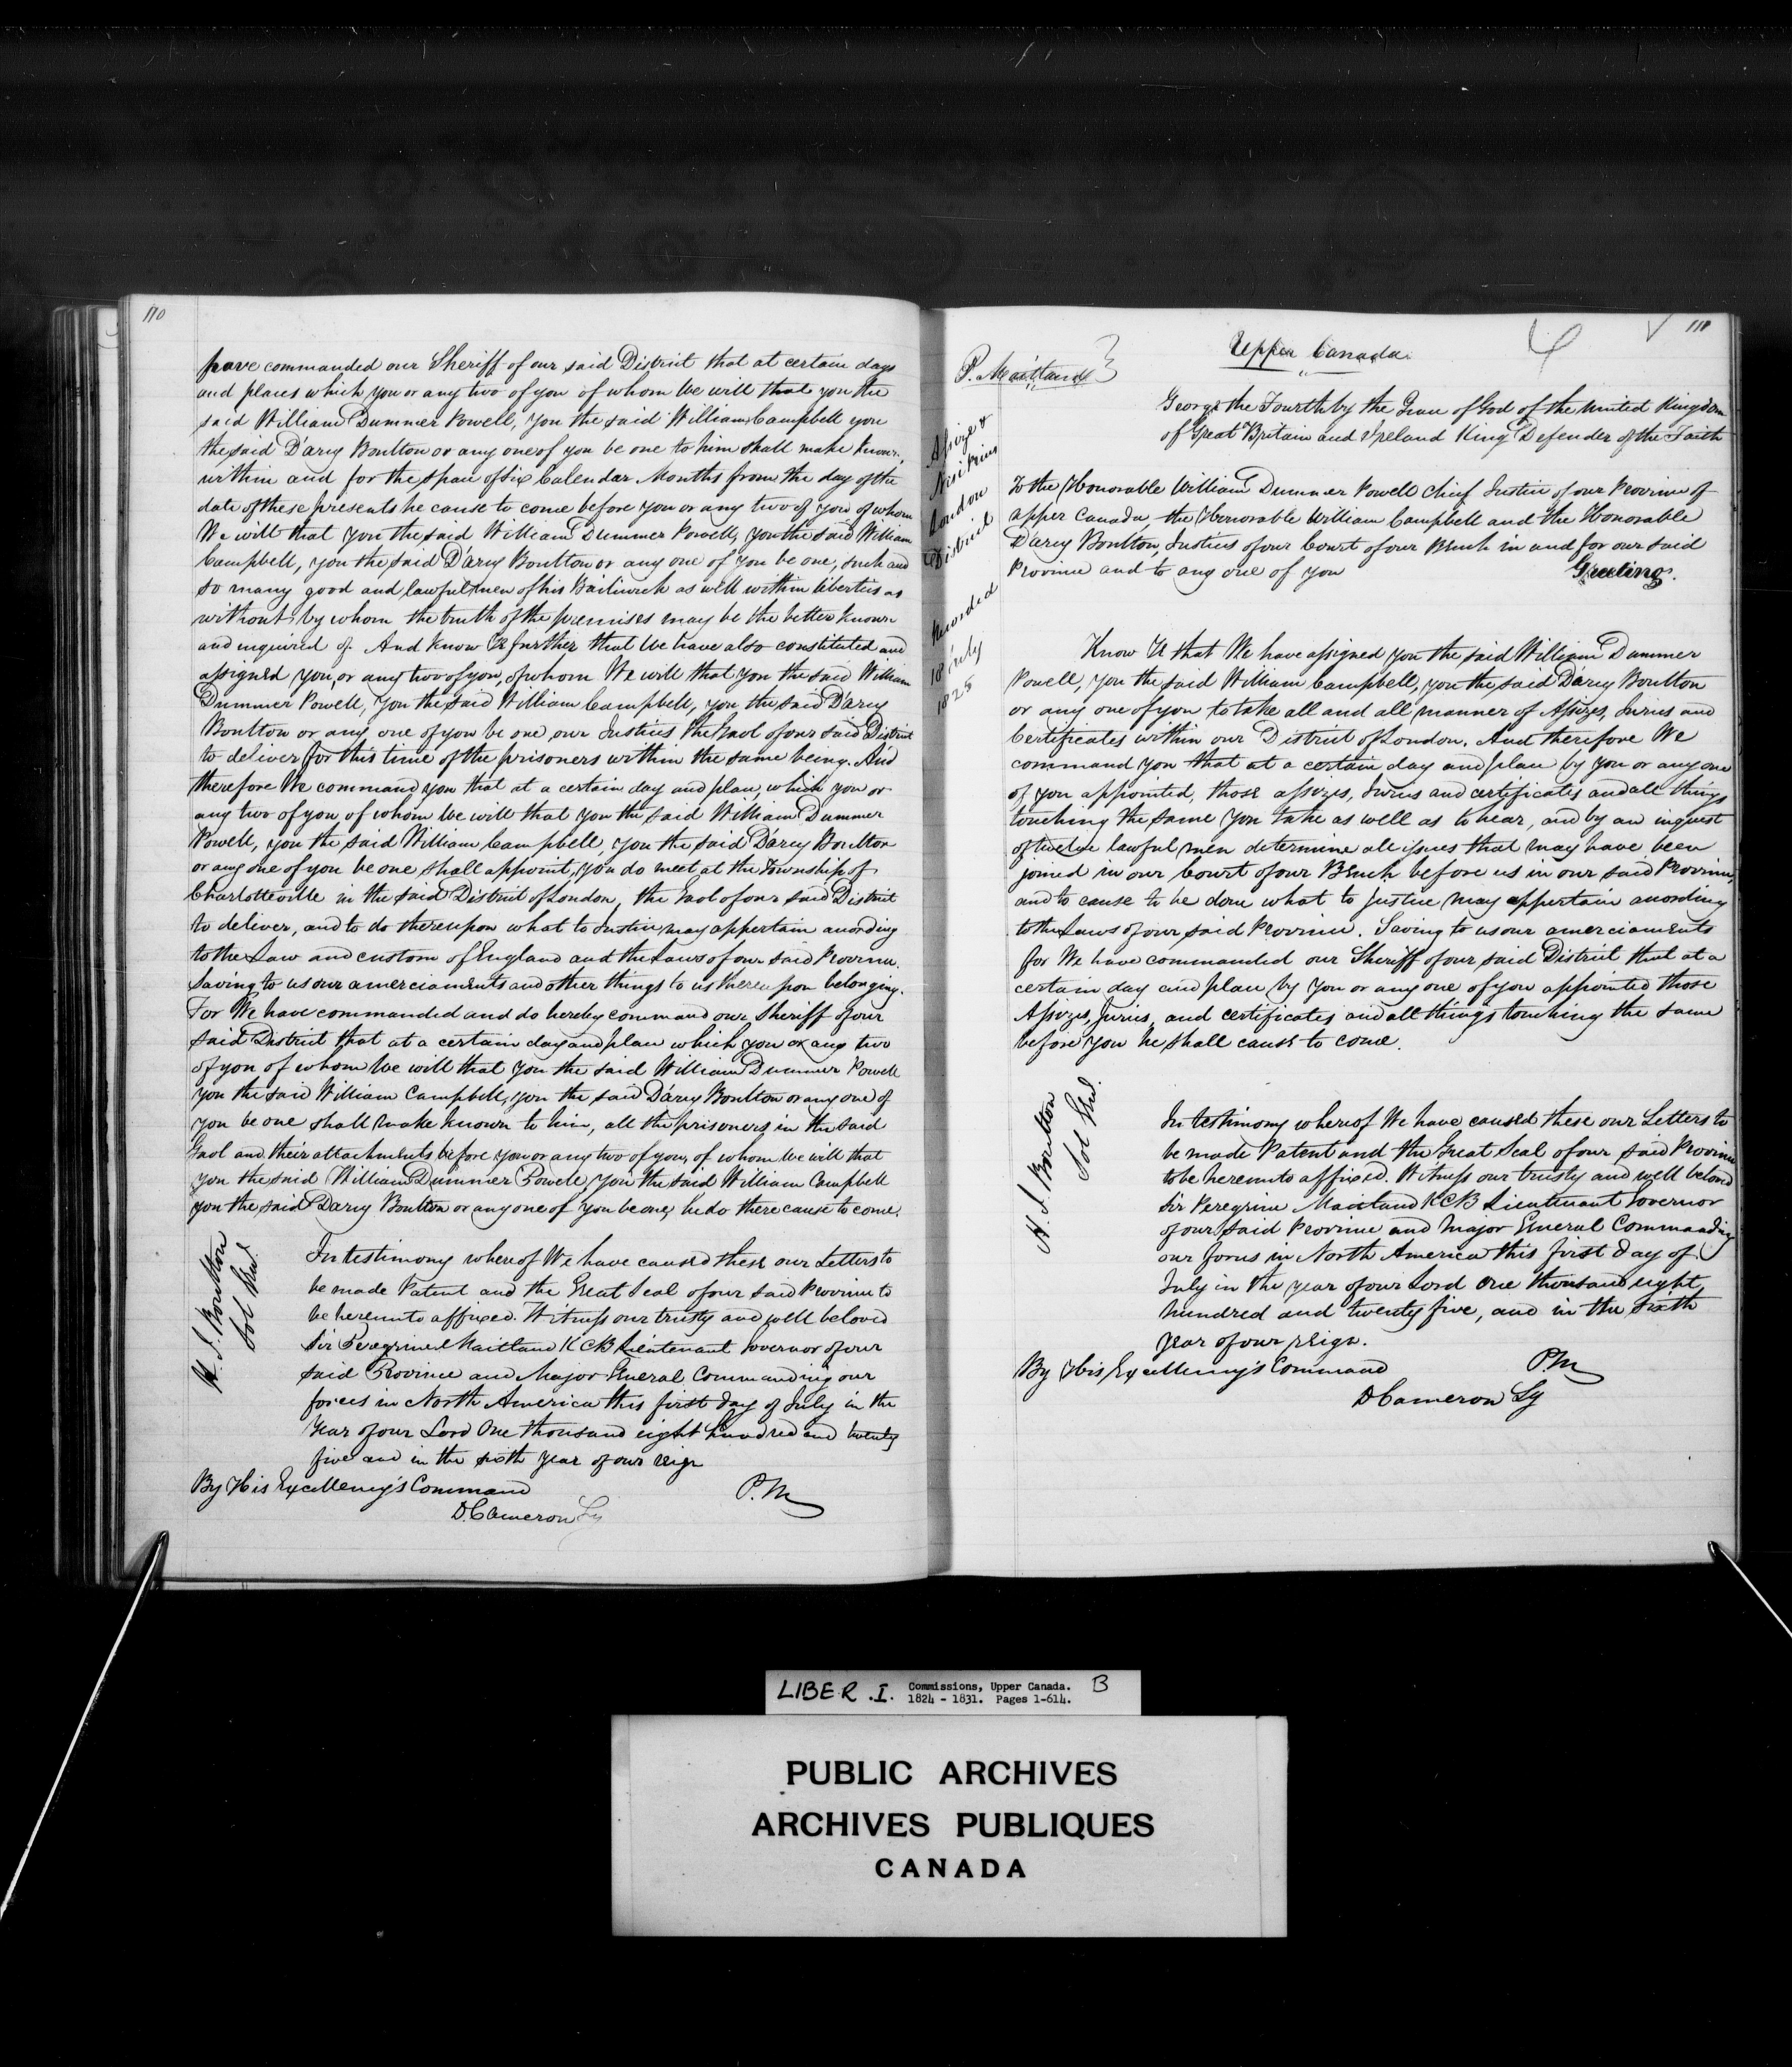 110
have commanded our Sheriff of our said District that at certain days
and places which you or any two of you of whom We will that you the
said William Dummer Powell, you the said William Campbell you
the said D'arcy Boulton or any one of you be one to him shall make known,
within and for the space of six Calendar Months from the day of the
date of these presents he cause to come before you or any two of you of whom
We will that you the said William Dummer Powell, you the said William
Campbell, you the said D'arcy Boulton or any one of you be one, such and
so many good and lawful men of his Bailiwick as well within liberties as
without by whom the truth of the premises may be the better known
and inquired of. And Know Ye further that We have also constituted and
assigned you, or any two of you, of whom We will that you the said William
Dummer Powell, you the said William Campbell, you the said D'arcy
Boulton or any one of you be one, our Justices the Gaol of our said District
to deliver for this time of the prisoners within the same being. And
therefore We command you that at a certain day and place, which you or
any two of you, of whom We will that you the said William Dummer
Powell, you the said William Campbell, you the said D'arcy Boulton
or any one of you be one shall appoint, you do meet at the Township of
Charlotteville in the said District of London, the Gaol of our said District
to deliver, and to do thereupon what to Justice may appertain according
to the Law and custom of England and the Laws of our said Province.
Saving to us our amerciaments and other things to us thereupon belonging.
For We have commanded and do hereby command our Sheriff of our
said District that at a certain day and place which you or any two
of you of whom We will that you the said William Dummer Powell
you the said William Campbell, you the said D'arcy Boulton or any one of
you be one shall make known to him, all the prisoners in the said
Gaol and their attachments before you or any two of you, of whom We will that
you the said William Dummer Powell, you the said William Campbell
you the said Darcy Boulton or any one of you be one, he do there cause to come.
H. J. Boulton
Sol Genl.
In testimony whereof We have caused these our Letters to
be made Patent and the Great Seal of our said Province to
be hereunto affixed. Witness our trusty and well beloved
Sir Peregrine Maitland KCB Lieutenant Governor of our
said Province and Major General Commanding our
forces in North America this first day of July in the
Year of our Lord One thousand eight hundred and twenty
five and in the sixth year of our reign
By His Excellency's Command
P.M
D. Cameron Sy
111
Upper Canada.
P. Maitland
Assize &
Nisi Prius
London
District
Recorded
18 July
1825
George the Fourth by the Grace of God of the United Kingdom
of Great Britain and Ireland King Defender of the Faith
To the Honorable William Dummer Powell Chief Justice of our Province of
Upper Canada, the Honorable William Campbell and the Honorable
D'arcy Boulton, Justices of our Court of our Bench in and for our said
Province and to any one of you
Greeting.
Know Ye that We have assigned you the said William Dummer
Powell, you the said William Campbell, you the said D'arcy Boulton
or any one of you to take all and all manner of Assizes, Juries and
Certificates within our District of London. And therefore We
command you that at a certain day and place by you or any one
of you appointed, those assizes, Juries and certificates and all things
touching the same you take as well as to hear, and by an inquest
of twelve lawful men determine all issues that may have been
joined in our Court of our Bench before us in our said Province,
and to cause to be done what to justice may appertain according
to the Laws of our said Province. Saving to us our amerciaments
for We have commanded our Sheriff of our said District that at a
certain day and place by you or any one of you appointed those
Assizes, Juries, and certificates and all things touching the same
before you he shall cause to come.
H. J. Boulton
Sol Genl
In testimony whereof We have caused these our Letters to
be made Patent and the Great Seal of our said Province
to be hereunto affixed. Witness our trusty and well beloved
Sir Peregrine Maitland KCB Lieutenant Governor
of our said Province and Major General Commanding
our forces in North America this first day of
July in the year of our Lord One thousand eight
hundred and twenty five, and in the sixth
year of our reign.
By His Excellency's Command
PM
D Cameron Sy
LIBER .I. Commissions, Upper Canada. B
1824 - 1831. Pages 1-614.
PUBLIC ARCHIVES
ARCHIVES PUBLIQUES
CANADA